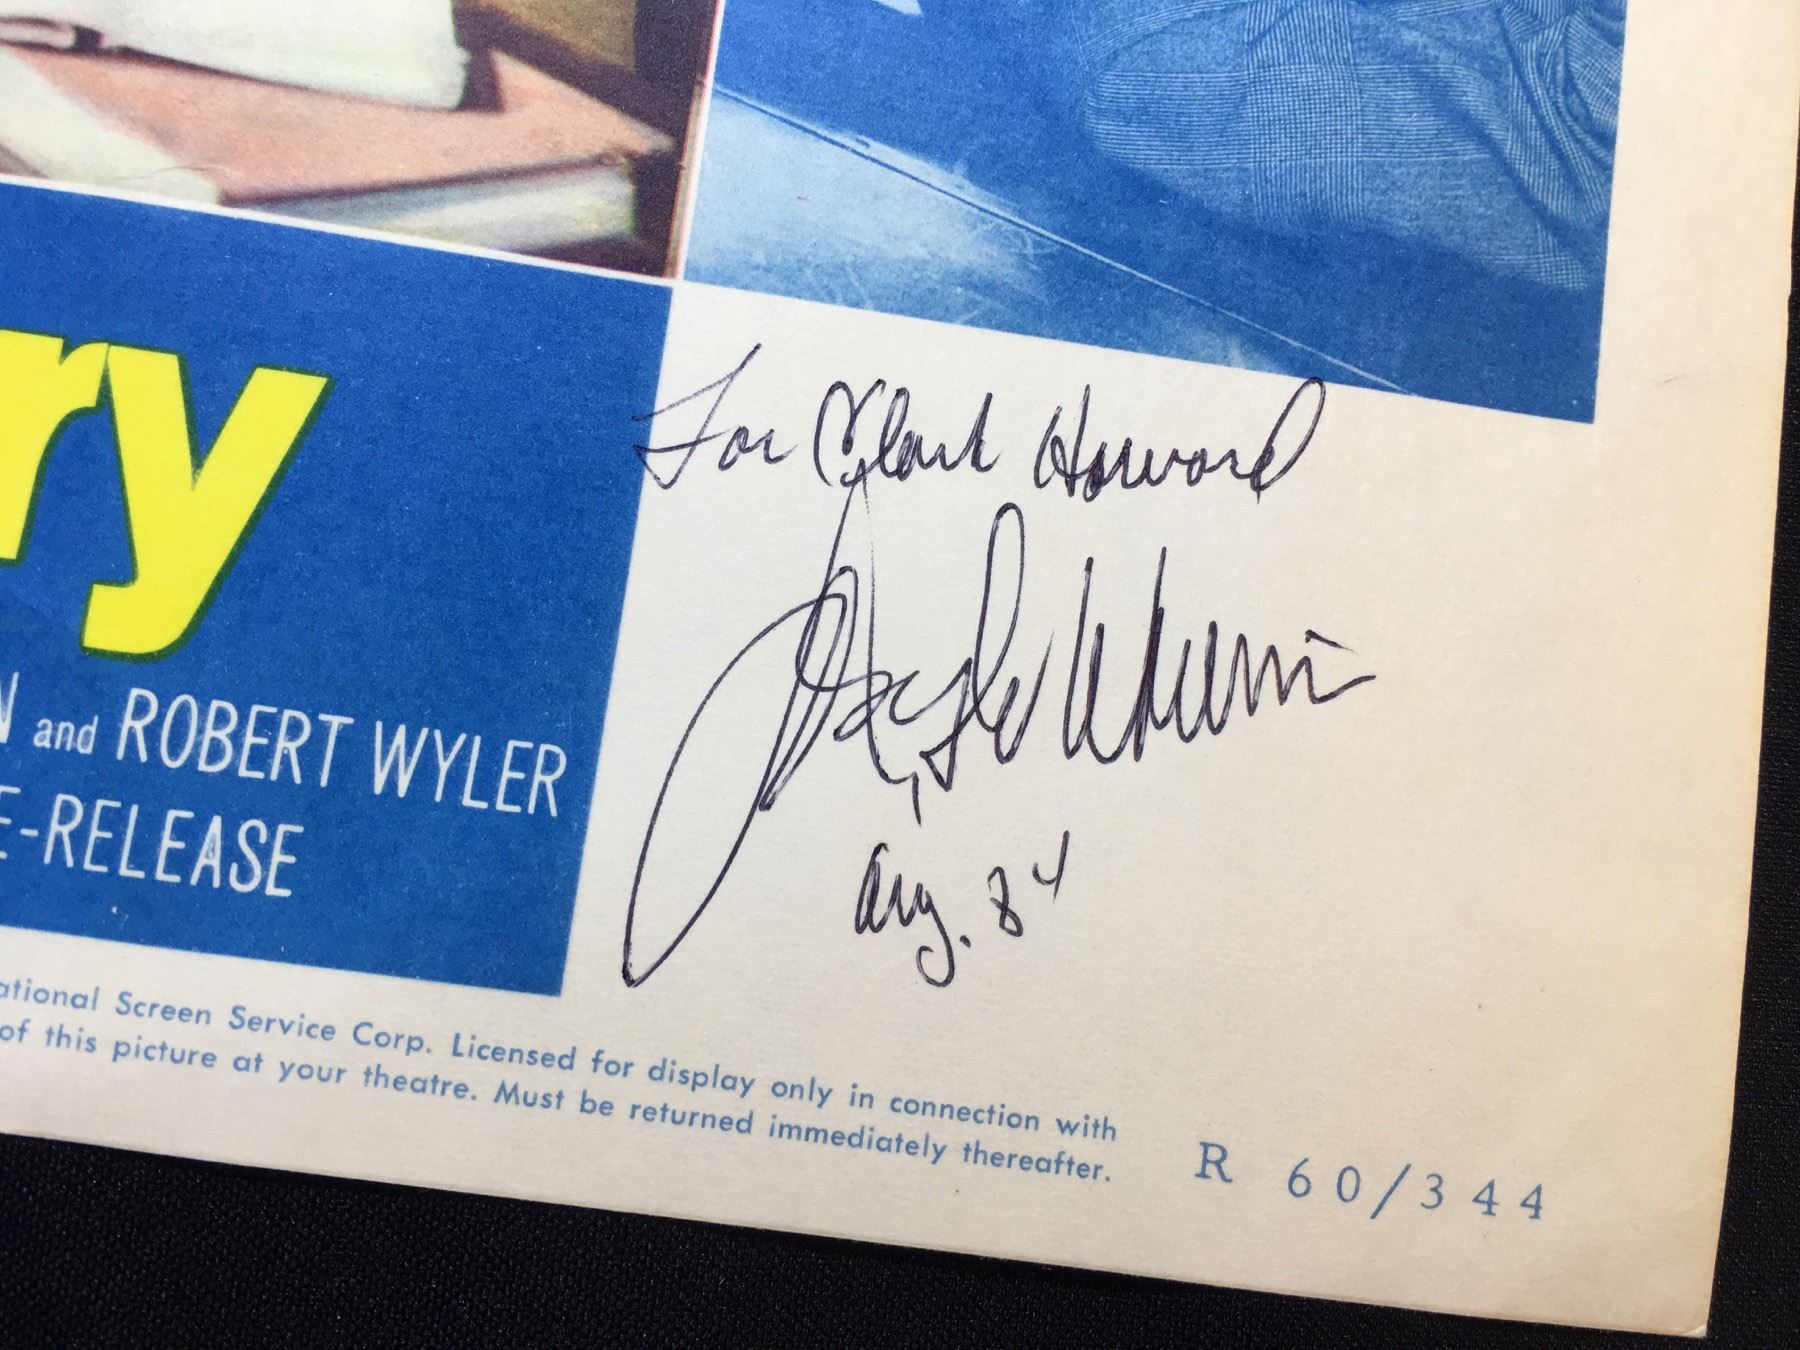 ry
N and ROBERT WYLER
E-RELEASE
For Clark Howard
Aug. 84
ational Screen Service Corp. Licensed for display only in connection with
of this picture at your theatre. Must be returned immediately thereafter.
R 60/344